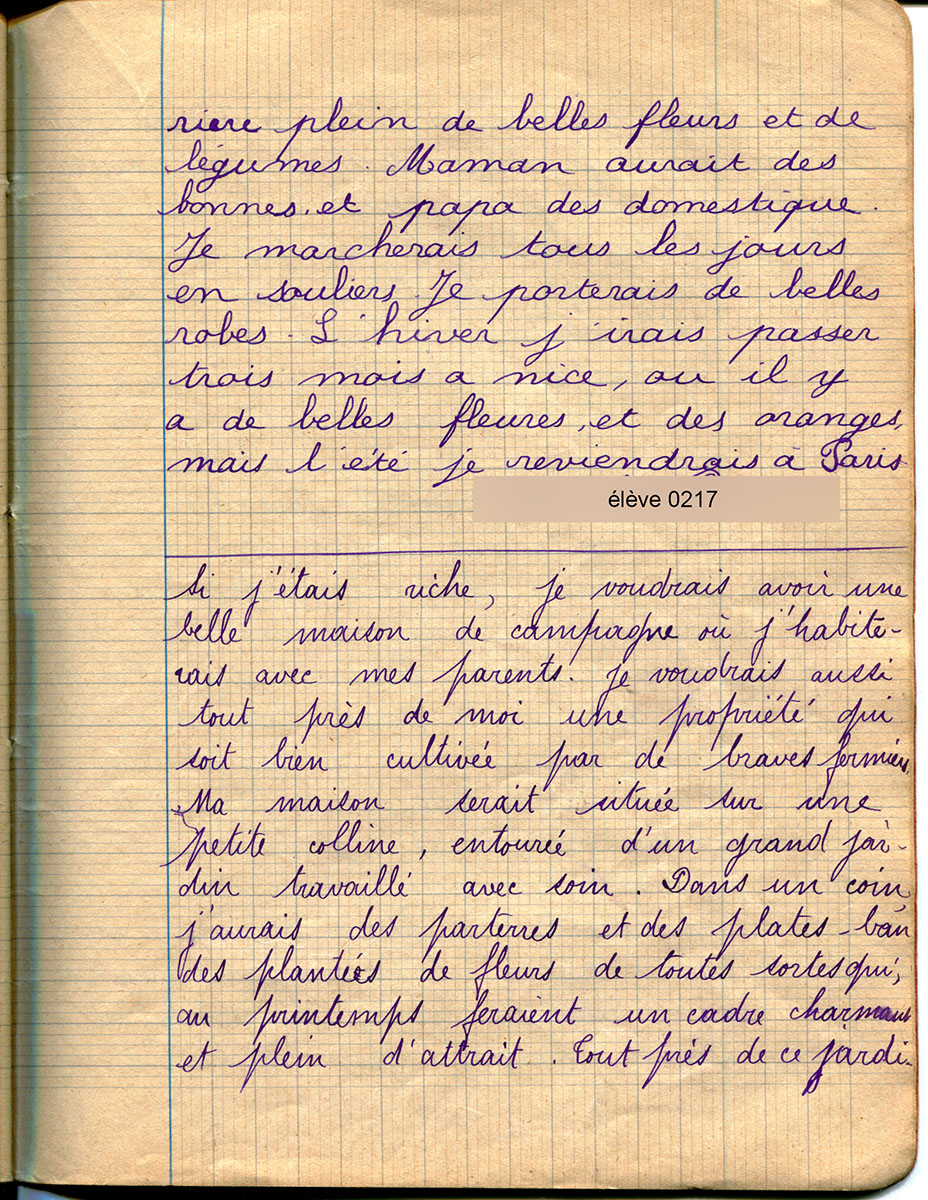 riere plein de belles fleurs et de
légumes. Maman aurait des
bonnes, et papa des domestique.
Je marcherais tous les jours
en souliers. Je porterais de belles
robes. L'hiver j'irais passer
trois mois a nice, ou il y
a de belles fleures, et des oranges,
mais l'été je reviendrais à Paris
élève 0217
Si j'étais riche, je voudrais avoir une
belle maison de campagne où j'habite-
rais avec mes parents. Je voudrais aussi
tout près de moi une propriété qui
soit bien cultivée par de braves fermiers.
Ma maison serait située sur une
petite colline, entourée d'un grand jar-
din travaillé avec soin. Dans un coin,
j'aurais des parterres et des plates-ban
des plantées de fleurs de toutes sortes qui,
au printemps feraient un cadre charmant
et plein d'attrait. Tout près de ce jardi-